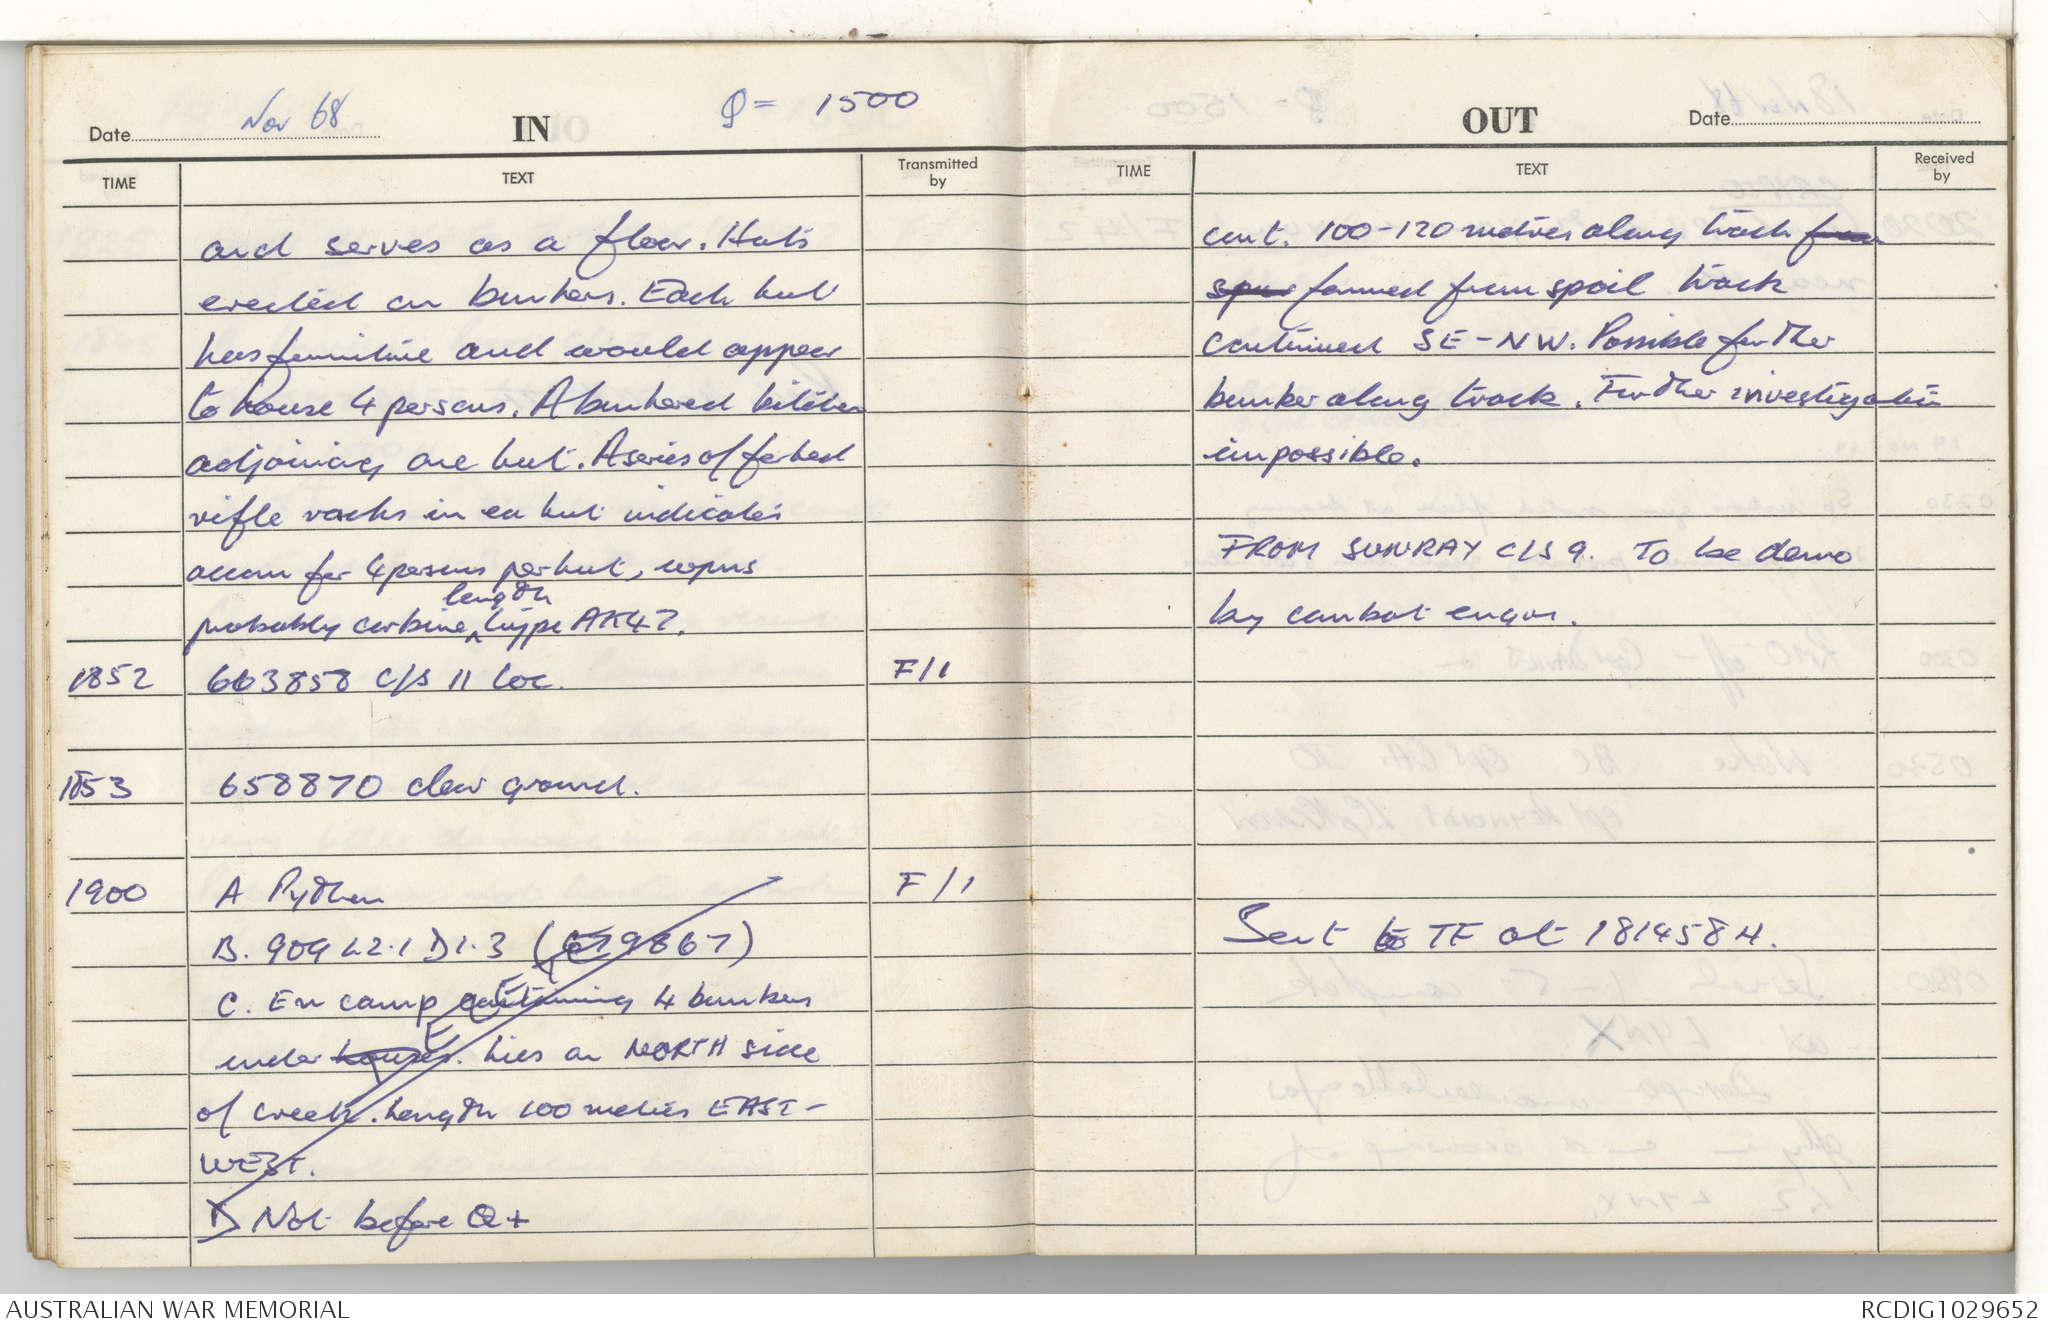 Date Nov 68 IN Q = 1500
TIME TEXT Transmitted by
and serves as a floor. Huts
erected on bunkers. Each hut
has furniture and would appear
to house 4 persons. A bunkered kitchen
adjoining one hut. A series of forked
rifle racks in ea hut indicates
accom for 4 persons per hut, wpns
probably carbine length type AK47.
1852 663858 C/S 11 loc. F/1
1853 658870 clear ground.
1900 A Python F/1
B. 909 L2.1 D1.3 (679867)
C. En camp containing 4 bunkers
under houses. Lies on NORTH side
of creek. Length 100 metres EAST-
WEST.
D Not before Q+
OUT Date
TIME TEXT Received by
cont. 100-120 metres along track from
spur formed from spoil track
continued SE-NW. Possible further
bunker along track. Further investigation
impossible.
FROM SUNRAY C/S 9. To be demo
by combat engnr.
Sent to TF at 181458H.
AUSTRALIAN WAR MEMORIAL RCDIG1029652